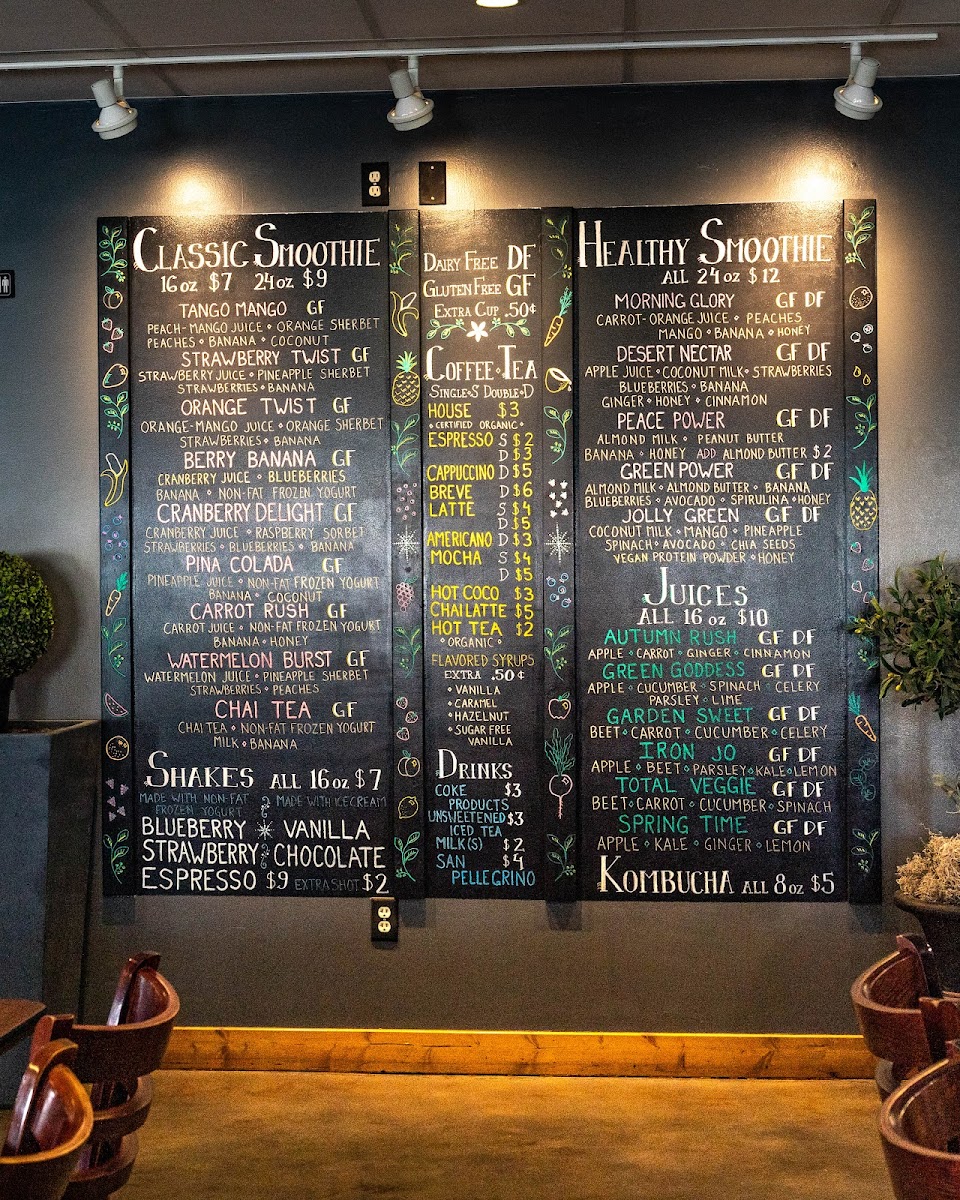 CLASSIC SMOOTHIE
16 oz $7 24 oz $9
TANGO MANGO GF
PEACH-MANGO JUICE ∘ ORANGE SHERBET
PEACHES ∘ BANANA ∘ COCONUT
STRAWBERRY TWIST GF
STRAWBERRY JUICE ∘ PINEAPPLE SHERBET
STRAWBERRIES ∘ BANANA
ORANGE TWIST GF
ORANGE-MANGO JUICE ∘ ORANGE SHERBET
STRAWBERRIES ∘ BANANA
BERRY BANANA GF
CRANBERRY JUICE ∘ BLUEBERRIES
BANANA ∘ NON-FAT FROZEN YOGURT
CRANBERRY DELIGHT GF
CRANBERRY JUICE ∘ RASPBERRY SORBET
STRAWBERRIES ∘ BLUEBERRIES ∘ BANANA
PINA COLADA GF
PINEAPPLE JUICE ∘ NON-FAT FROZEN YOGURT
BANANA ∘ COCONUT
CARROT RUSH GF
CARROT JUICE ∘ NON-FAT FROZEN YOGURT
BANANA ∘ HONEY
WATERMELON BURST GF
WATERMELON JUICE ∘ PINEAPPLE SHERBET
STRAWBERRIES ∘ PEACHES
CHAI TEA GF
CHAI TEA ∘ NON-FAT FROZEN YOGURT
MILK ∘ BANANA
SHAKES ALL 16 oz $7
MADE WITH NON-FAT FROZEN YOGURT
MADE WITH ICECREAM
BLUEBERRY VANILLA
STRAWBERRY CHOCOLATE
ESPRESSO $9 EXTRA SHOT $2
DAIRY FREE DF
GLUTEN FREE GF
EXTRA CUP .50¢
COFFEE ∘ TEA
SINGLE∘S DOUBLE∘D
HOUSE $3
∘ CERTIFIED ORGANIC ∘
ESPRESSO S $2
D $3
CAPPUCCINO D $5
BREVE D $6
LATTE S $4
D $5
AMERICANO D $3
MOCHA S $4
D $5
HOT COCO $3
CHAI LATTE $5
HOT TEA $2
∘ ORGANIC ∘
FLAVORED SYRUPS
EXTRA .50¢
∘ VANILLA
∘ CARAMEL
∘ HAZELNUT
∘ SUGAR FREE
VANILLA
DRINKS
COKE $3
PRODUCTS
UNSWEETENED $3
ICED TEA
MILK(S) $2
SAN $4
PELLEGRINO
HEALTHY SMOOTHIE
ALL 24 oz $12
MORNING GLORY GF DF
CARROT-ORANGE JUICE ∘ PEACHES
MANGO ∘ BANANA ∘ HONEY
DESERT NECTAR GF DF
APPLE JUICE ∘ COCONUT MILK ∘ STRAWBERRIES
BLUEBERRIES ∘ BANANA
GINGER ∘ HONEY ∘ CINNAMON
PEACE POWER GF DF
ALMOND MILK ∘ PEANUT BUTTER
BANANA ∘ HONEY ADD ALMOND BUTTER $2
GREEN POWER GF DF
ALMOND MILK ∘ ALMOND BUTTER ∘ BANANA
BLUEBERRIES ∘ AVOCADO ∘ SPIRULINA ∘ HONEY
JOLLY GREEN GF DF
COCONUT MILK ∘ MANGO ∘ PINEAPPLE
SPINACH ∘ AVOCADO ∘ CHIA SEEDS
VEGAN PROTEIN POWDER ∘ HONEY
JUICES
ALL 16 oz $10
AUTUMN RUSH GF DF
APPLE ∘ CARROT ∘ GINGER ∘ CINNAMON
GREEN GODDESS GF DF
APPLE ∘ CUCUMBER ∘ SPINACH ∘ CELERY
PARSLEY ∘ LIME
GARDEN SWEET GF DF
BEET ∘ CARROT ∘ CUCUMBER ∘ CELERY
IRON JO GF DF
APPLE ∘ BEET ∘ PARSLEY ∘ KALE ∘ LEMON
TOTAL VEGGIE GF DF
BEET ∘ CARROT ∘ CUCUMBER ∘ SPINACH
SPRING TIME GF DF
APPLE ∘ KALE ∘ GINGER ∘ LEMON
KOMBUCHA ALL 8 oz $5